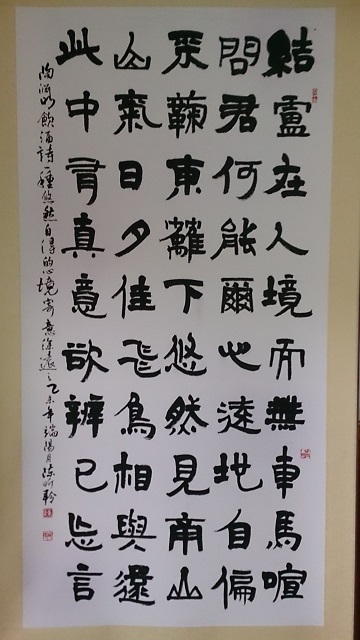 結盧在人境而無車馬喧
問君何能爾心遠地自偏
采鞠東籬下悠然見南山
山氣日夕佳飛鳥相與還
此中有真意欲辨已忘言
陶淵明飲酒詩一種悠然自得的心境寄意深遠乙未年端陽月陳